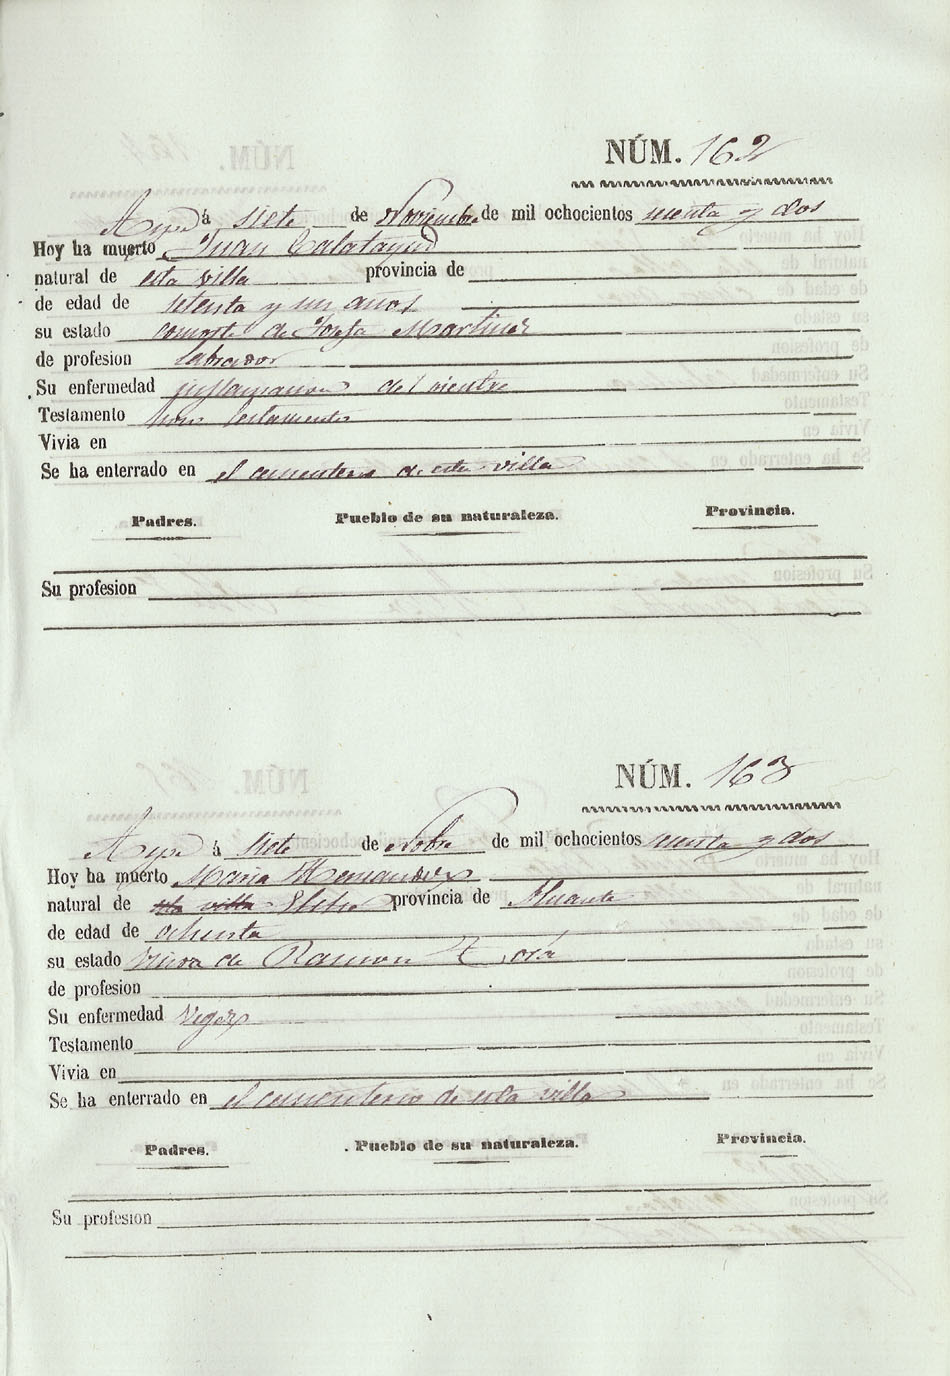 NÚM. 162
Aspe á siete de Noviembre de mil ochocientos sesenta y dos
Hoy ha muerto Juan Calatayud
natural de esta villa provincia de
de edad de setenta y un años
su estado consorte de Josefa Martinez
de profesion labrador
Su enfermedad inflamacion del vientre
Testamento hizo testamento
Vivia en
Se ha enterrado en el cementerio de esta villa
Padres. Pueblo de su naturaleza. Provincia.
Su profesion
NÚM. 163
Aspe á siete de Nobre de mil ochocientos sesenta y dos
Hoy ha muerto Maria Hernandez
natural de esta villa Elche provincia de Alicante
de edad de ochenta
su estado viuda de Ramon
de profesion
Su enfermedad Vegez
Testamento
Vivia en
Se ha enterrado en el cementerio de esta villa
Padres. Pueblo de su naturaleza. Provincia.
Su profesion